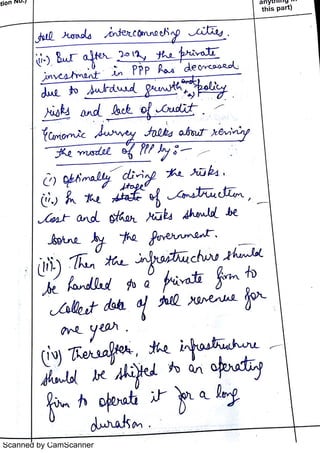 tion No.)
anything in
this part)
toll roads interconnecting cities.
(ii.) But after 2012, the private
investment in PPP has decreased
due to subdued growth and policy
risks and lack of credit.
Economic Survey talks about reviving
the model of PPP by :-
(i) optimally diving the risks.
(ii.) In the stage of construction,
cost and other risks should be
borne by the government.
(iii) Then the infrastructure should
be handled to a private firm to
collect data of toll revenue for
one year.
(iv) Thereafter, the infrastructure
should be shifted to an operating
firm to operate it for a long
duration.
Scanned by CamScanner